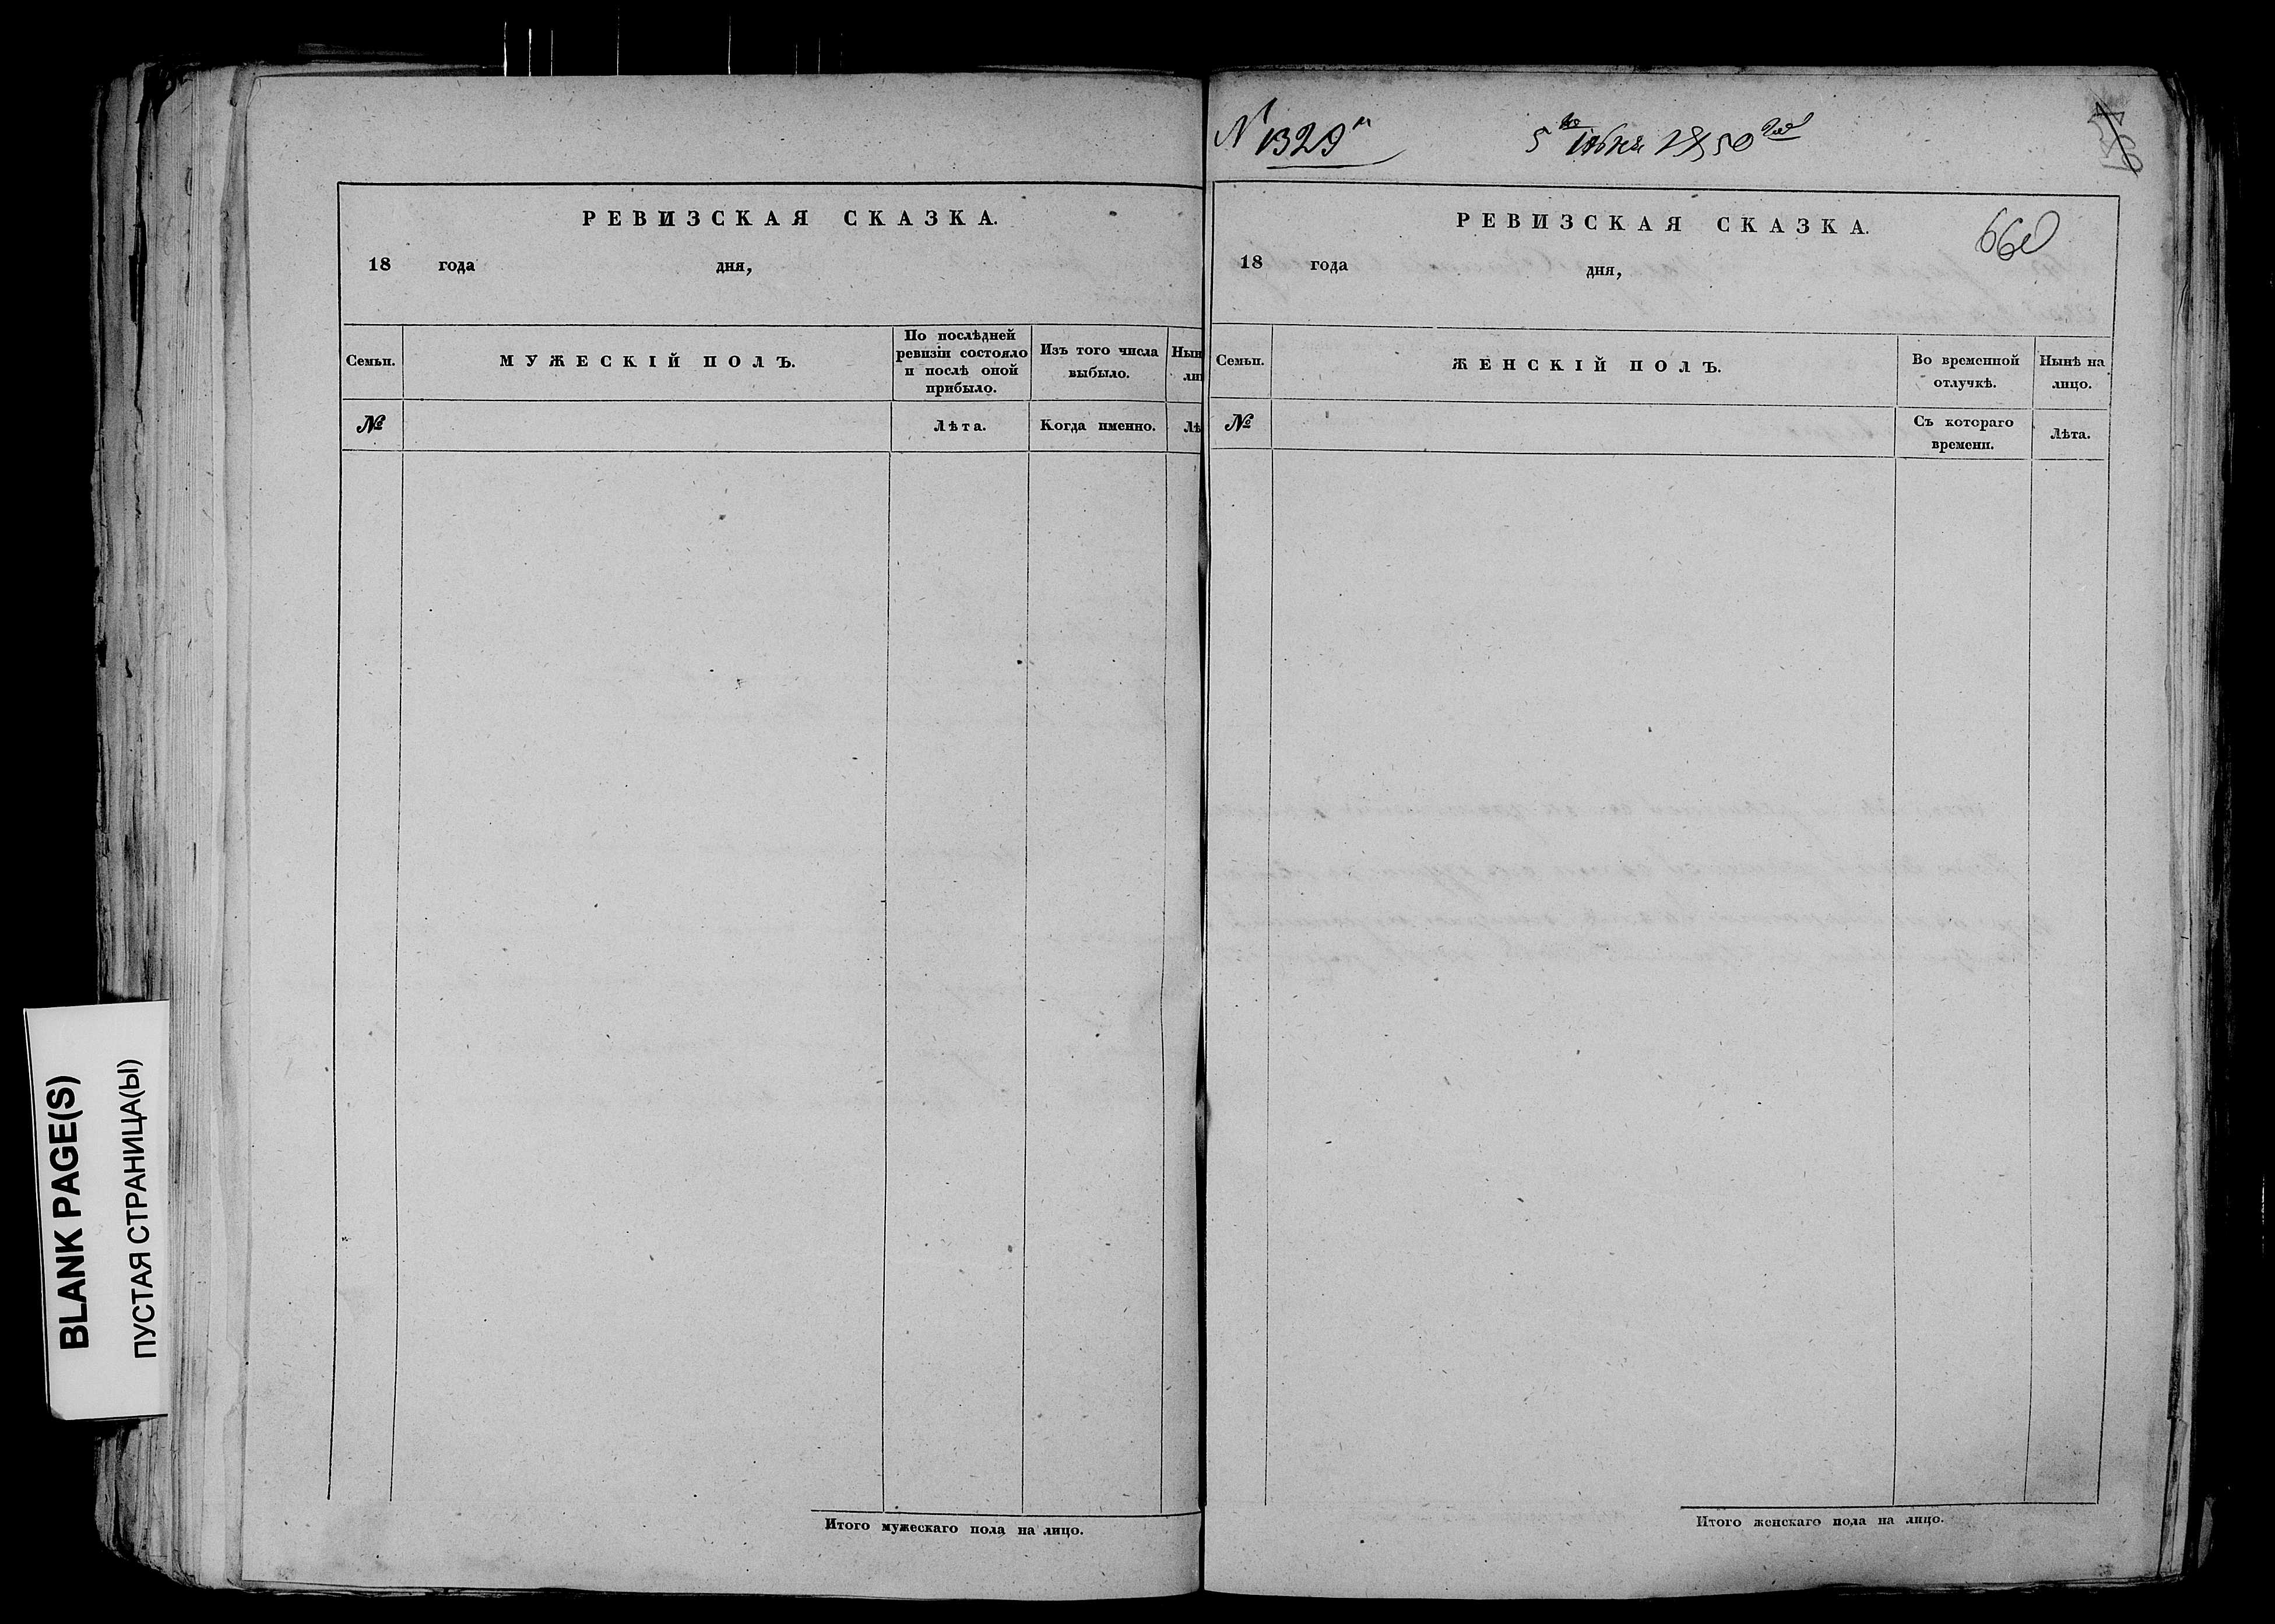 BLANK PAGE(S)
ПУСТАЯ СТРАНИЦА(Ы)
РЕВИЗСКАЯ СКАЗКА.
18 года дня,
Семьи.
МУЖЕСКІЙ ПОЛЪ.
По послѣдней
ревизіи состояло
и послѣ оной
прибыло.
Изъ того числа
выбыло.
Нын
ли
№
Лѣта.
Когда именно.
Лѣ
Итого мужескаго пола на лицо.
N 1329
5 1850
РЕВИЗСКАЯ СКАЗКА.
660
18 года дня,
Семьи.
ЖЕНСКІЙ ПОЛЪ.
Во временной
отлучкѣ.
Нынѣ на
лицо.
№
Съ котораго
времени.
Лѣта.
Итого женскаго пола на лицо.